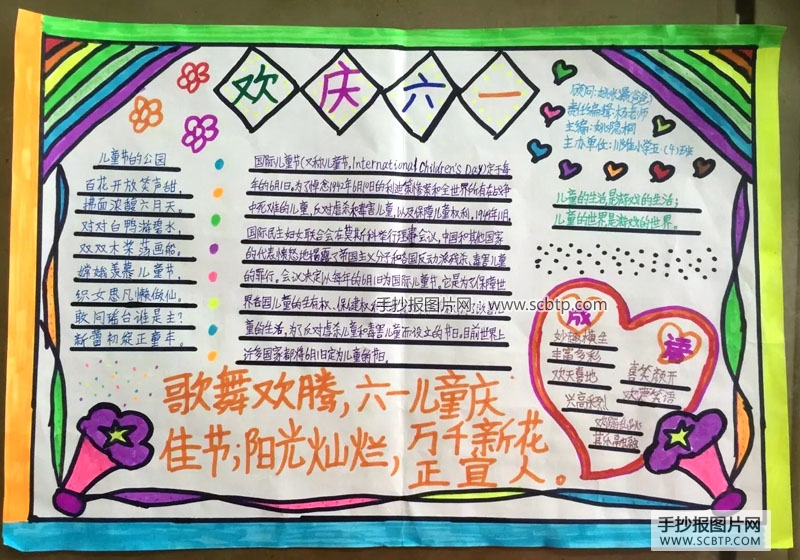 欢庆六一
顾问:
责任编辑:杨老师
主编:姚晓桐
主办单位:
儿童的生活是游戏的生活;
儿童的世界是游戏的世界。
儿童节的公园
百花开放笑声甜,
拂面浓馥六月天。
对对白鸭游碧水,
双双木桨荡画船。
嫦娥羡慕儿童节,
织女思凡懒做仙。
敢问瑶台谁是主?
新蕾初绽正童年。
国际儿童节(又称儿童节,International Children's Day)定于每
年的6月1日。为了悼念1942年6月10日的利迪策惨案和全世界所有在战争
中死难的儿童,反对虐杀和毒害儿童,以及保障儿童权利,1949年11月,
国际民主妇女联合会在莫斯科举行理事会议,中国和其他国家
的代表愤怒地揭露了帝国主义分子和各国反动派残杀、毒害儿童
的罪行。会议决定以每年的6月1日为国际儿童节。它是为了保障世
界各国儿童的生存权、保健权
童的生活,为了反对虐杀儿童和毒害儿童而设立的节日。目前世界上
许多国家都将6月1日定为儿童的节日。
手抄报图片网 www.scbtp.com
成
语
妙趣横生
丰富多彩
欢天喜地
兴高采烈
喜笑颜开
欢声笑语
其乐融融
歌舞欢腾,六一儿童庆
佳节;阳光灿烂,万千新花
正宜人。
手抄报图片网
WWW.SCBTP.COM